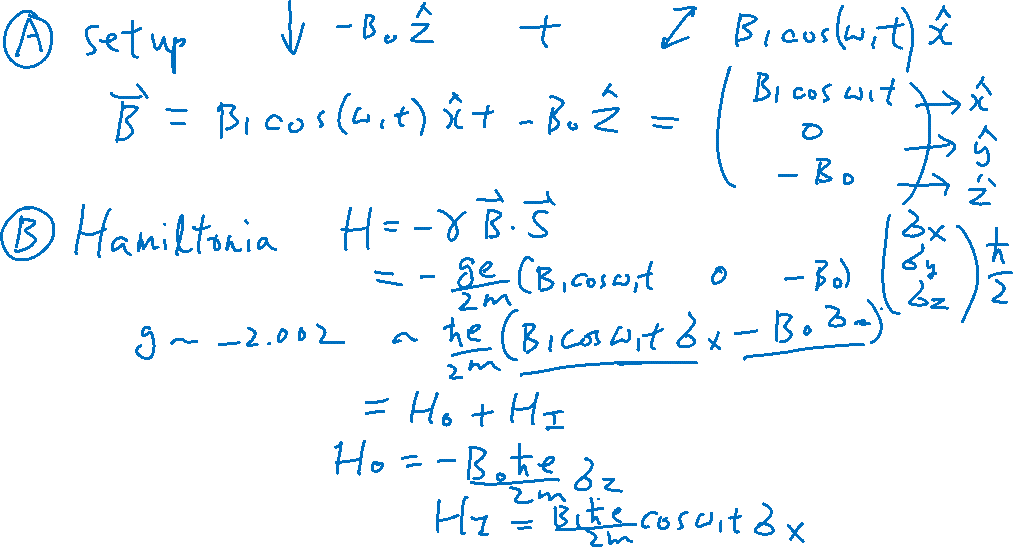 Ⓐ setup ↓ -B₀ẑ + ↗ B₁cos(ω₁t) x̂
B⃗ = B₁cos(ω₁t) x̂ + -B₀ ẑ = (B₁ cos ω₁t → x̂
0 → ŷ
-B₀ → ẑ)
Ⓑ Hamiltonia H = -γ B⃗·S⃗
= - ge/2m (B₁cosω₁t 0 -B₀) (σx σy σz) ħ/2
g ~ -2.002 ~ ħe/2m (B₁cosω₁t σx - B₀ σz)
= H₀ + H_I
H₀ = - B₀ħe/2m σz
H_I = B₁ħe/2m cosω₁t σx